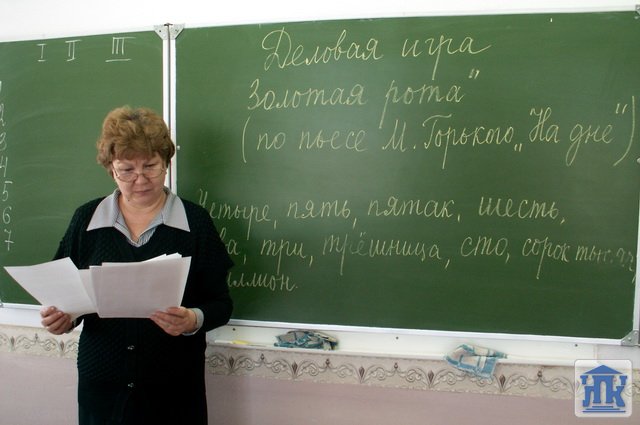 I II III
1
2
3
4
5
6
7
Деловая игра
Золотая рота"
(по пьесе М. Горького „На дне")
Четыре, пять, пятак, шесть,
три, трёшница, сто, сорок тыс.
ллион.
НК